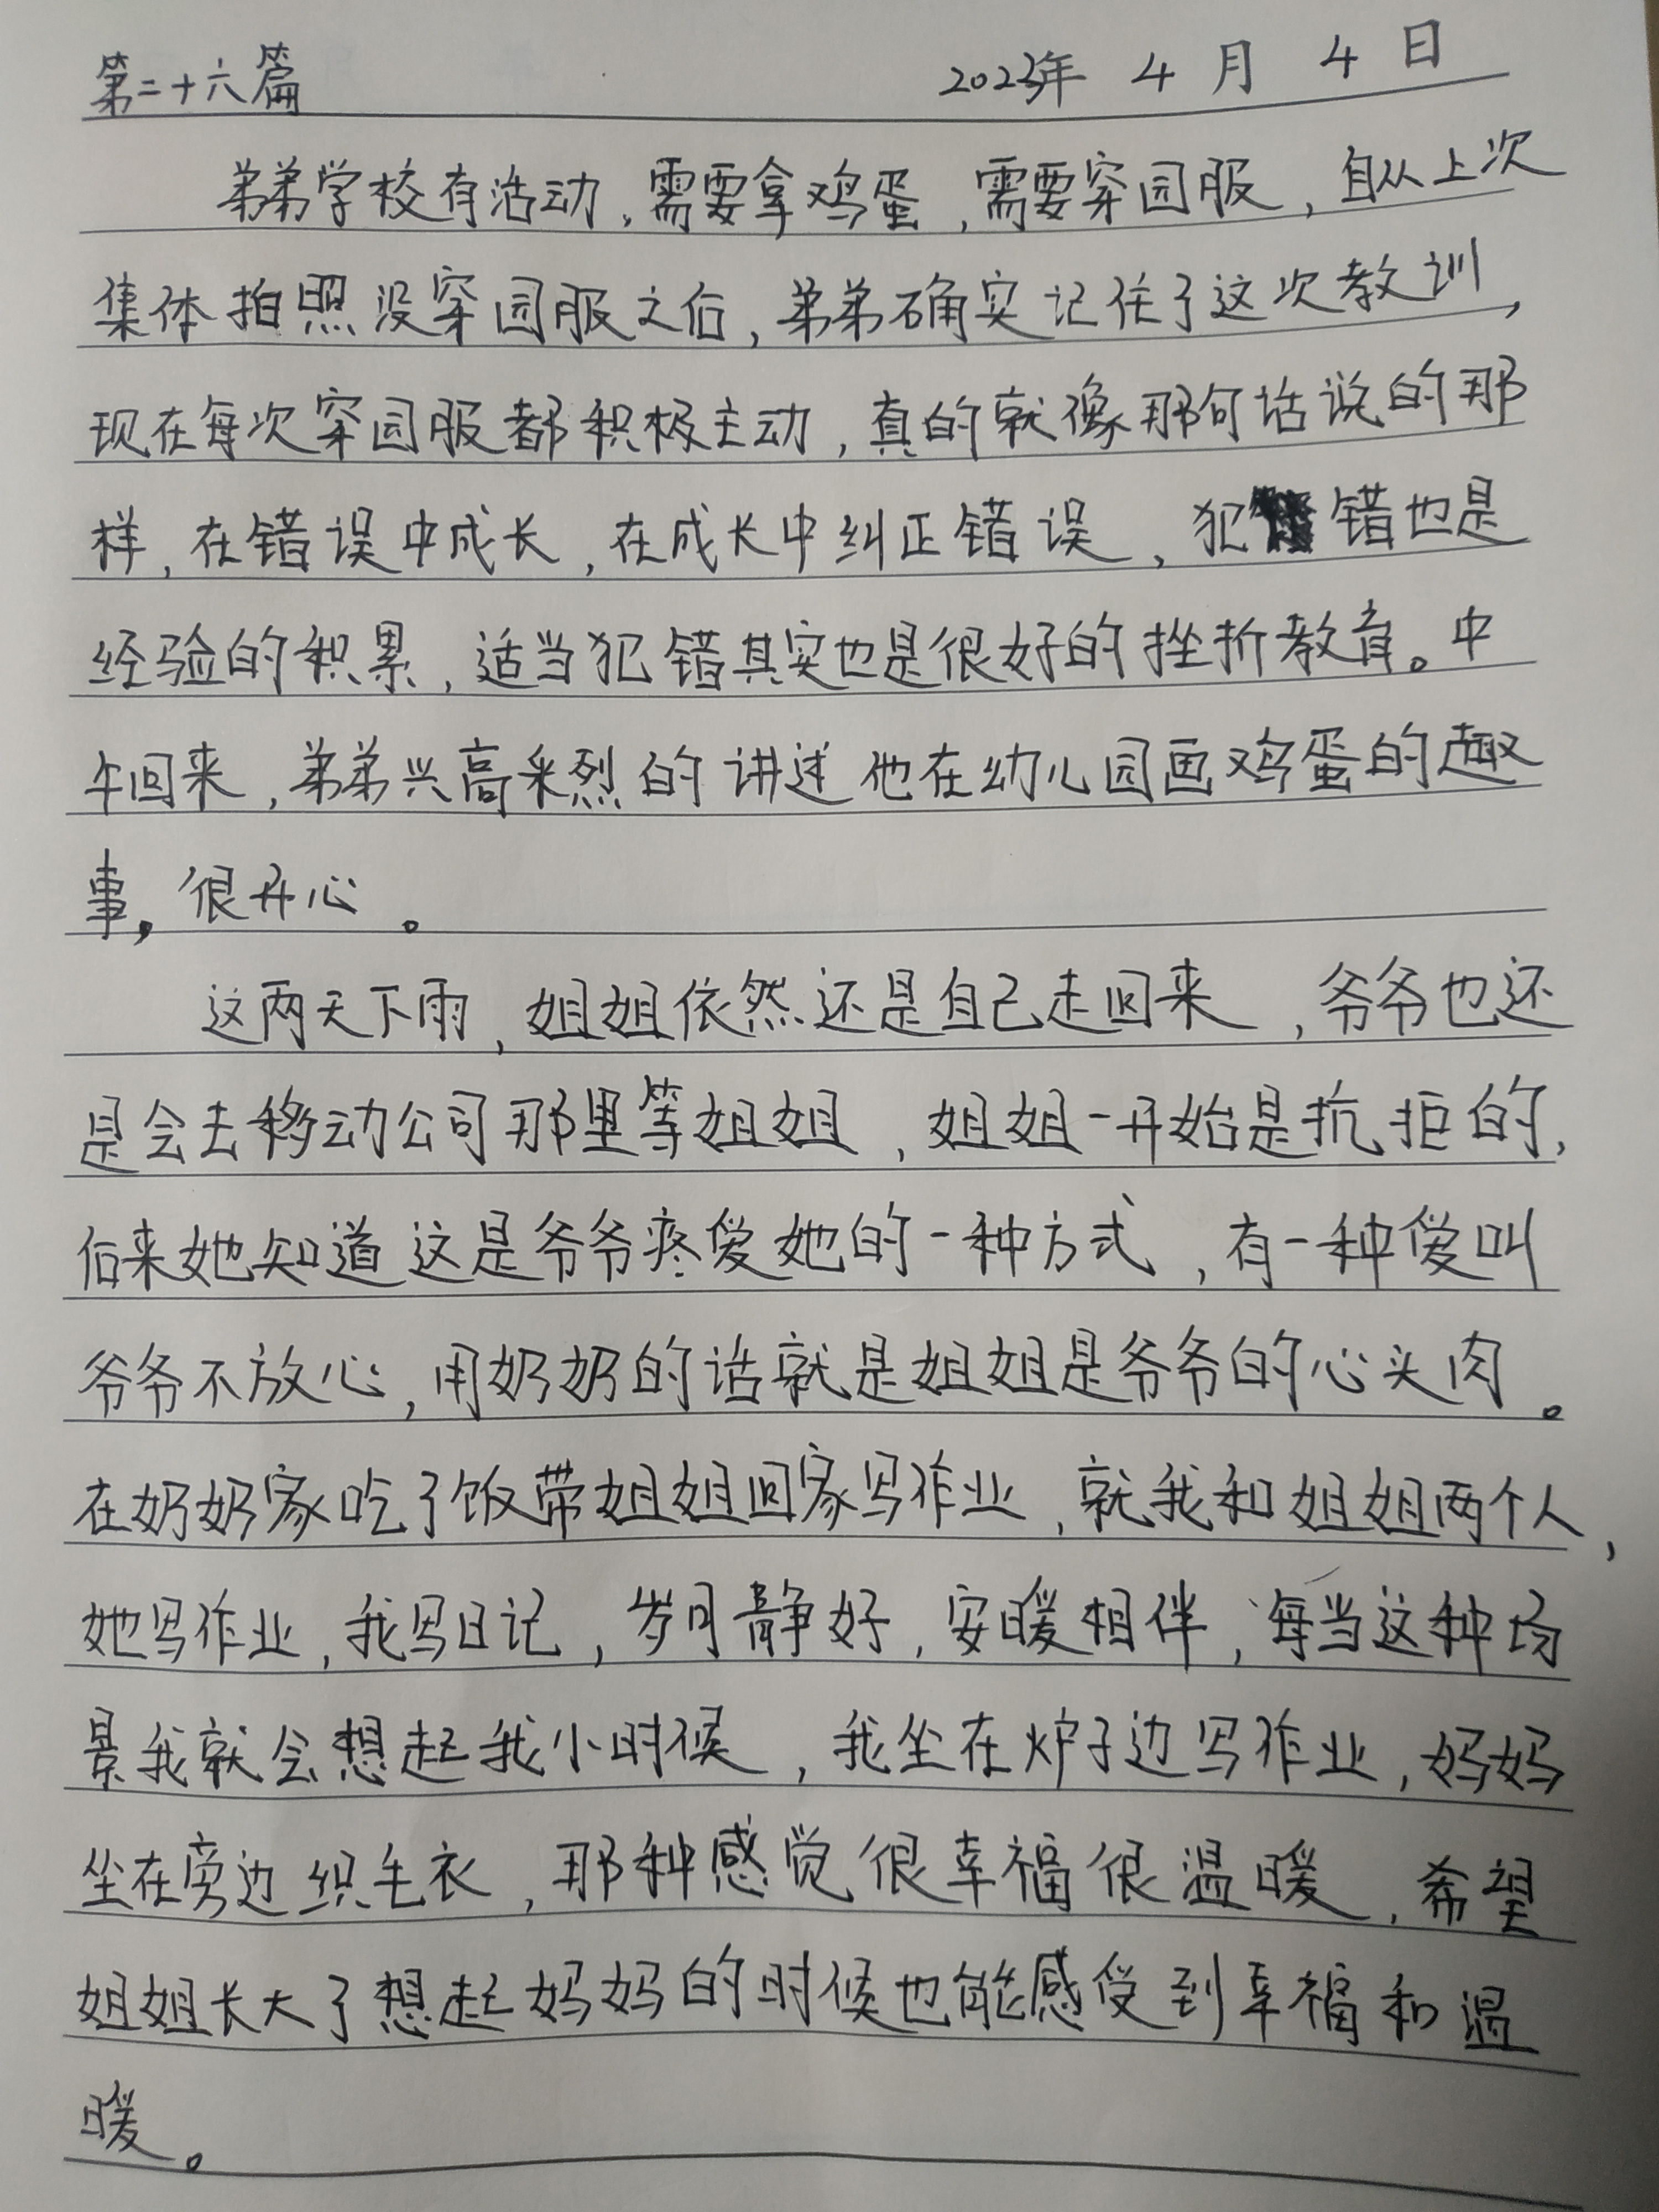 第二十六篇 2023年 4 月 4 日
弟弟学校有活动,需要拿鸡蛋,需要穿园服,自从上次
集体拍照没穿园服之后,弟弟确实记住了这次教训,
现在每次穿园服都积极主动,真的就像那句话说的那
样,在错误中成长,在成长中纠正错误,犯错也是
经验的积累,适当犯错其实也是很好的挫折教育。中
午回来,弟弟兴高采烈的讲述他在幼儿园画鸡蛋的趣
事,很开心。
这两天下雨,姐姐依然还是自己走回来,爷爷也还
是会去移动公司那里等姐姐,姐姐一开始是抗拒的,
后来她知道这是爷爷疼爱她的一种方式,有一种爱叫
爷爷不放心,用奶奶的话就是姐姐是爷爷的心头肉。
在奶奶家吃了饭带姐姐回家写作业,就我和姐姐两个人,
她写作业,我写日记,岁月静好,安暖相伴,每当这种场
景我就会想起我小时候,我坐在炉子边写作业,妈妈
坐在旁边织毛衣,那种感觉很幸福很温暖,希望
姐姐长大了想起妈妈的时候也能感受到幸福和温
暖。